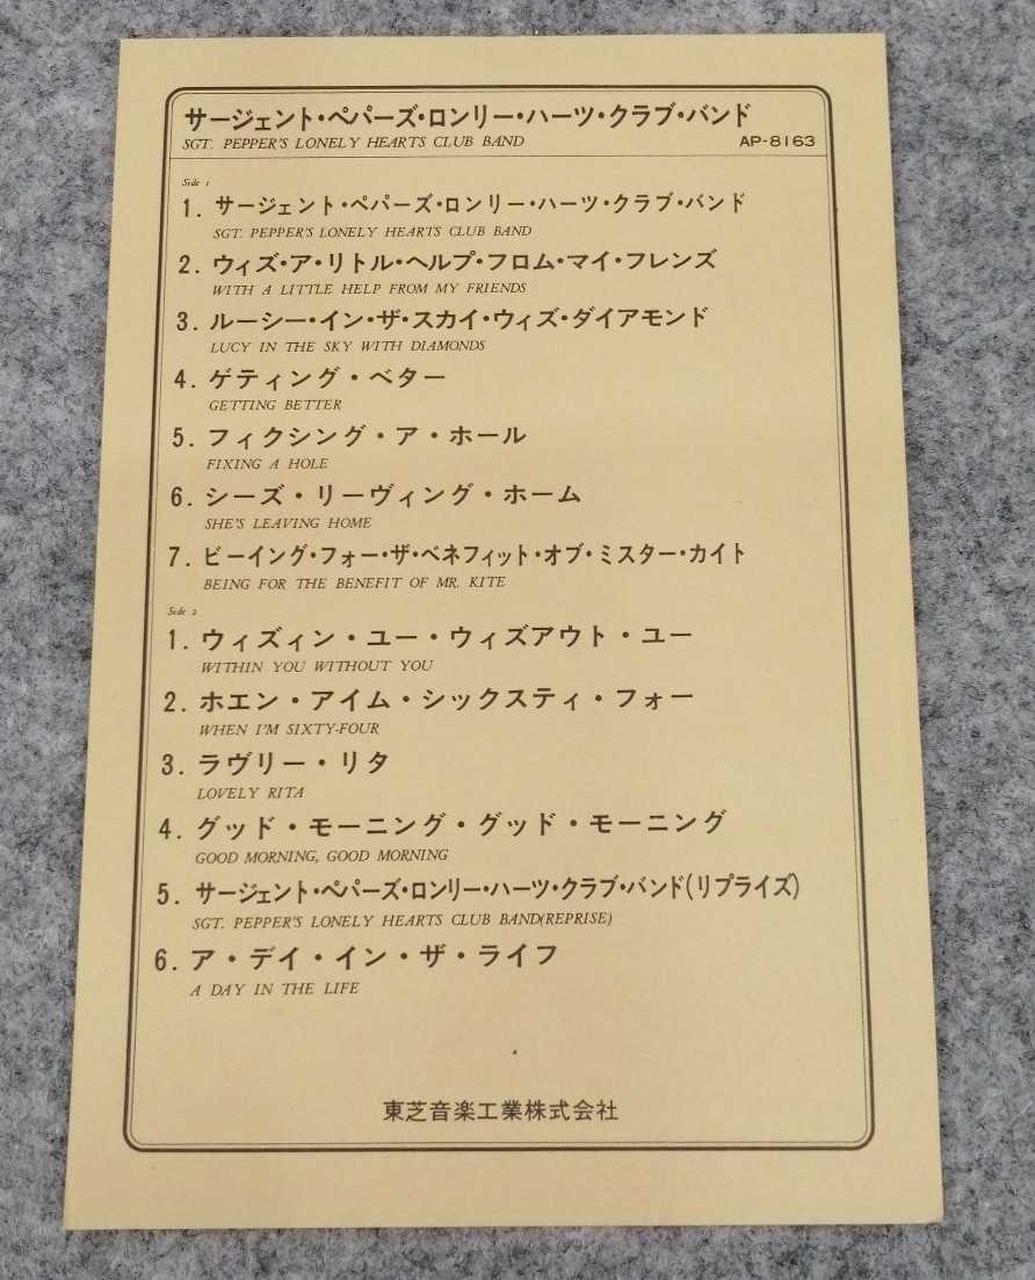 サージェント・ペパーズ・ロンリー・ハーツ・クラブ・バンド
SGT. PEPPER'S LONELY HEARTS CLUB BAND AP-8163
Side 1
1. サージェント・ペパーズ・ロンリー・ハーツ・クラブ・バンド
SGT. PEPPER'S LONELY HEARTS CLUB BAND
2. ウィズ・ア・リトル・ヘルプ・フロム・マイ・フレンズ
WITH A LITTLE HELP FROM MY FRIENDS
3. ルーシー・イン・ザ・スカイ・ウィズ・ダイアモンド
LUCY IN THE SKY WITH DIAMONDS
4. ゲティング・ベター
GETTING BETTER
5. フィクシング・ア・ホール
FIXING A HOLE
6. シーズ・リーヴィング・ホーム
SHE'S LEAVING HOME
7. ビーイング・フォー・ザ・ベネフィット・オブ・ミスター・カイト
BEING FOR THE BENEFIT OF MR. KITE
Side 2
1. ウィズィン・ユー・ウィズアウト・ユー
WITHIN YOU WITHOUT YOU
2. ホエン・アイム・シックスティ・フォー
WHEN I'M SIXTY-FOUR
3. ラヴリー・リタ
LOVELY RITA
4. グッド・モーニング・グッド・モーニング
GOOD MORNING, GOOD MORNING
5. サージェント・ペパーズ・ロンリー・ハーツ・クラブ・バンド(リプライズ)
SGT. PEPPER'S LONELY HEARTS CLUB BAND(REPRISE)
6. ア・デイ・イン・ザ・ライフ
A DAY IN THE LIFE
東芝音楽工業株式会社